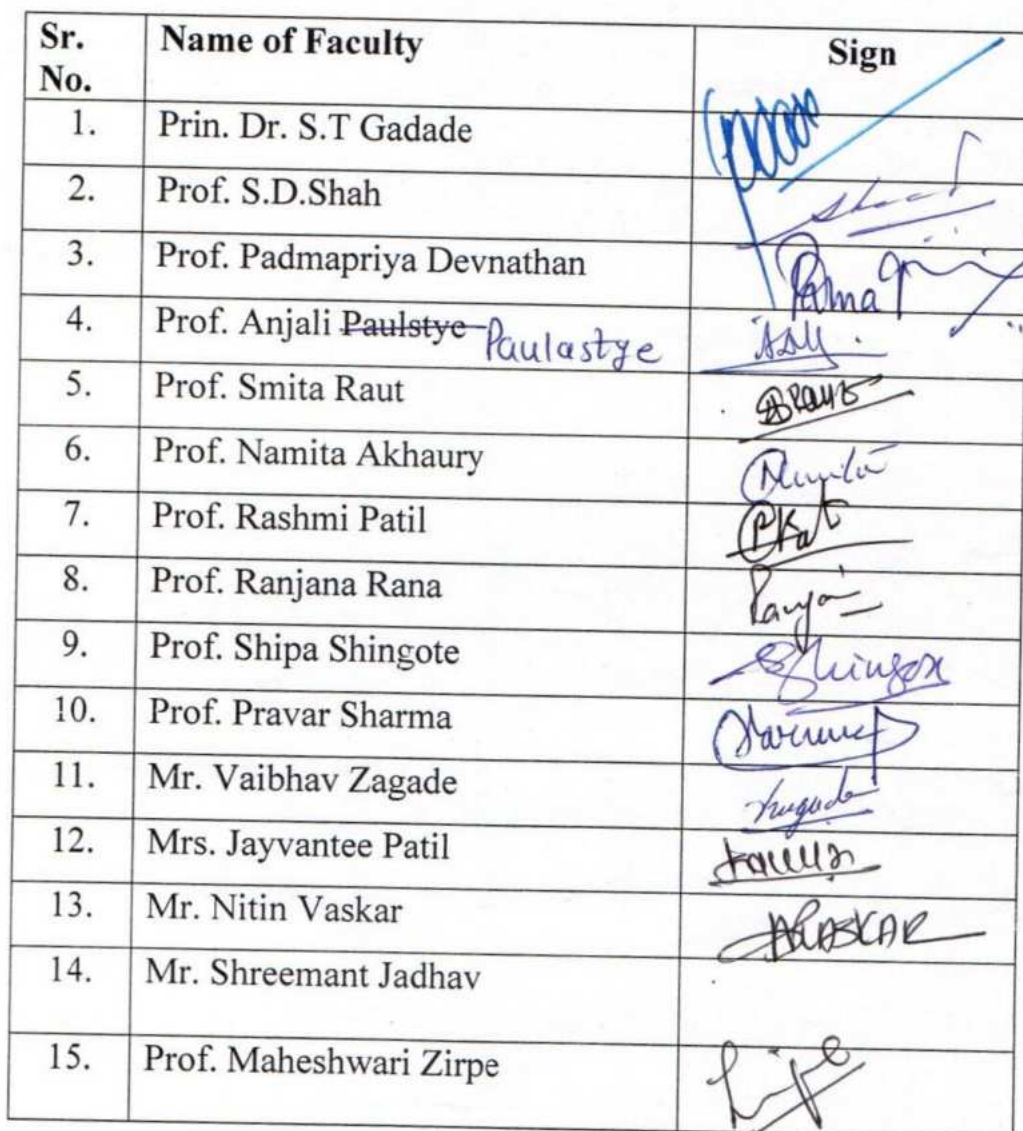 Sr. No. Name of Faculty Sign
1. Prin. Dr. S.T Gadade
2. Prof. S.D.Shah
3. Prof. Padmapriya Devnathan
4. Prof. Anjali Paulstye Paulastye
5. Prof. Smita Raut
6. Prof. Namita Akhaury
7. Prof. Rashmi Patil
8. Prof. Ranjana Rana
9. Prof. Shipa Shingote
10. Prof. Pravar Sharma
11. Mr. Vaibhav Zagade
12. Mrs. Jayvantee Patil
13. Mr. Nitin Vaskar
14. Mr. Shreemant Jadhav
15. Prof. Maheshwari Zirpe